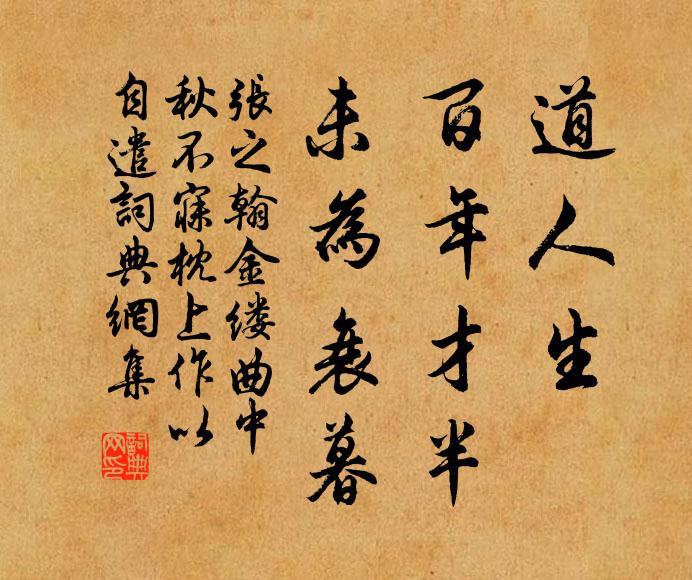 道人生
百年才半
未為衰暮
張之翰金缕曲中
秋不寐枕上作以
自遣詞典網集
詞典
网印